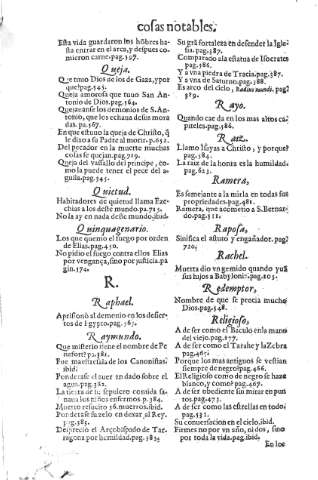 cosas notables.
Esta vida guardaron los hõbres ha-
sta entrar en el arca, y despues co-
mieron carne. pag.597.
Queja.
Que tuuo Dios de los de Gaza, y por
que? pag.545.
Queja amorosa que tuuo San An-
tonio de Dios. pag.564.
Quejaranse los demonios de S. An-
tonio, que los echaua de sus mora
das. pa.567.
En que estuuo la queja de Christo, q̃
le dio a su Padre al morir. p.652.
Del pecador en la muerte muchas
cosas se quejan. pag.719.
Queja del vassallo del principe, co-
mo la puede tener el pece del a-
guila. pag.345.
Quietud.
Habitadores de quietud llama Eze-
chias a los deste mundo. pa.715.
No la ay en nada deste mundo. ibid.
Quinquagenario.
Los que quemo el fuego por orden
de Elias. pag.450.
No pidio el fuego contra ellos Elias
por vengança, sino por justicia. pa
gin.174.
R.
Raphael.
Aprisionò al demonio en los desier-
tos de Egypto. pag.567.
Raymundo.
Que misterio tiene el nombre de Pe
ñafort? p.381.
Fue mastescala de los Canonistas.
ibid.
Ponderase el auer andado sobre el
agua. pag.382.
La tierra de su sepulcro comida sa-
naua los niños enfermos p.384.
Muerto resucitò 36. muertos. ibid.
Ponderase su zelo en dexar al Rey.
pag.385.
Despreciò el Arçobispado de Tar-
ragona por humildad. pag.385.
Su grã fortaleza en defender la Igle-
sia. pag.387.
Comparado a la estatua de Isocrates
pag.386.
Y a vna piedra de Tracia. pag.387.
Y a vna de Saturno. pag.388.
Es arco del ciclo, Radius mundi. pag?
389.
Rayo.
Quando cae da en los mas altos ca-
piteles. pag.586.
Raiz.
Llamò Isayas a Christo, y porque?
pag.584.
La raiz de la honra es la humildad.
pag.623.
Ramera,
Es semejante a la mirla en todas sus
propriedades. pag.481.
Ramera, que acometio a S. Bernar-
do. pag.511.
Raposa,
Sinifica el astuto y engañador. pag?
720,
Rachel.
Muerta dio vn gemido quando yuã
sus hijos a Babylonia. pag.205.
Redemptor,
Nombre de que se precia mucho
Dios. pag.548.
Religioso,
A de ser como el Baculo en la mano
del viejo. pag.377.
A de ser como el Tarahe y la Zebra
pag.467.
Porque los mas antiguos se vestian
siempre de negro? pag.466.
El Religioso como de negro se haze
blanco, y como? pag.467.
A de ser obediente sin mirar en pun
tos. pag.473.
A de ser como las estrellas en todo;
pag.531.
Su conuersacion en el cielo. ibid.
Firmes no por vn año, ni dos, sino
por toda la vida. pag. ibid.
En los